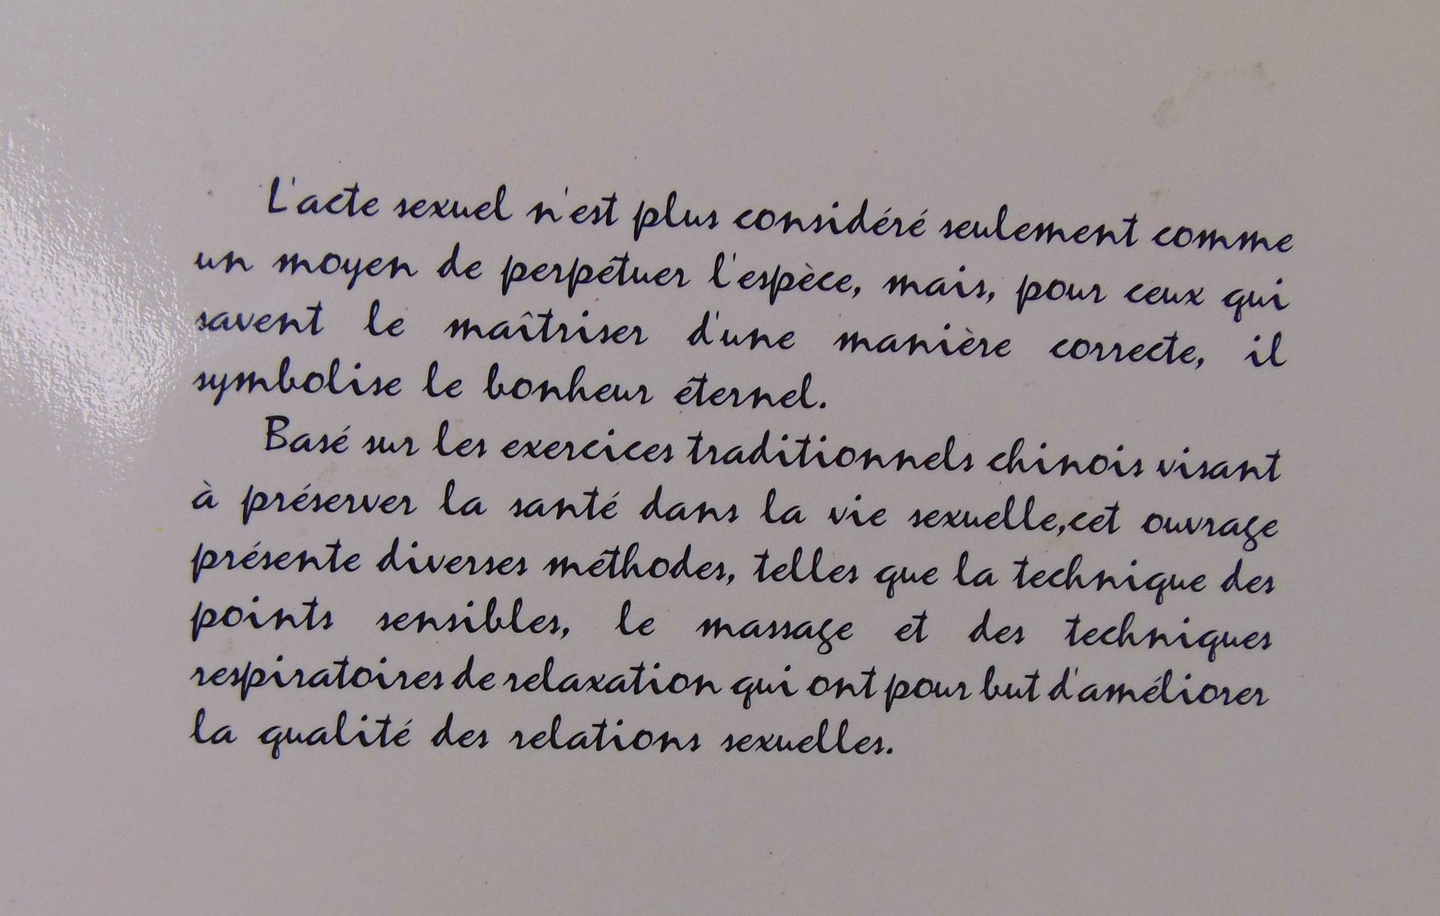 L'acte sexuel n'est plus considéré seulement comme
un moyen de perpétuer l'espèce, mais, pour ceux qui
savent le maîtriser d'une manière correcte, il
symbolise le bonheur éternel.
Basé sur les exercices traditionnels chinois visant
à préserver la santé dans la vie sexuelle,cet ouvrage
présente diverses méthodes, telles que la technique des
points sensibles, le massage et des techniques
respiratoires de relaxation qui ont pour but d'améliorer
la qualité des relations sexuelles.